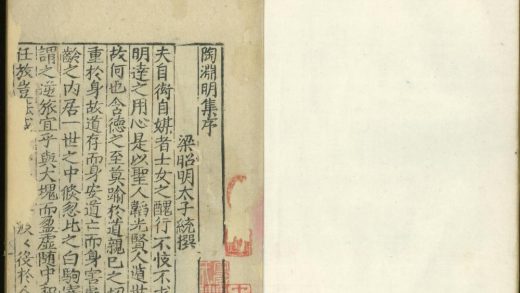 陶淵明集序
梁昭明太子統撰
夫自衒自媒者士女之醜行不忮不求
明達之用心是以聖人韜光賢人遁世
故何也含德之至莫踰於道親己之切
重於身故道存而身安道亡而身害
齡之内居一世之中倏忽比之白駒寄
謂之逆旅宜乎與大塊而盈虛隨中和
任放豈 汲々役於人